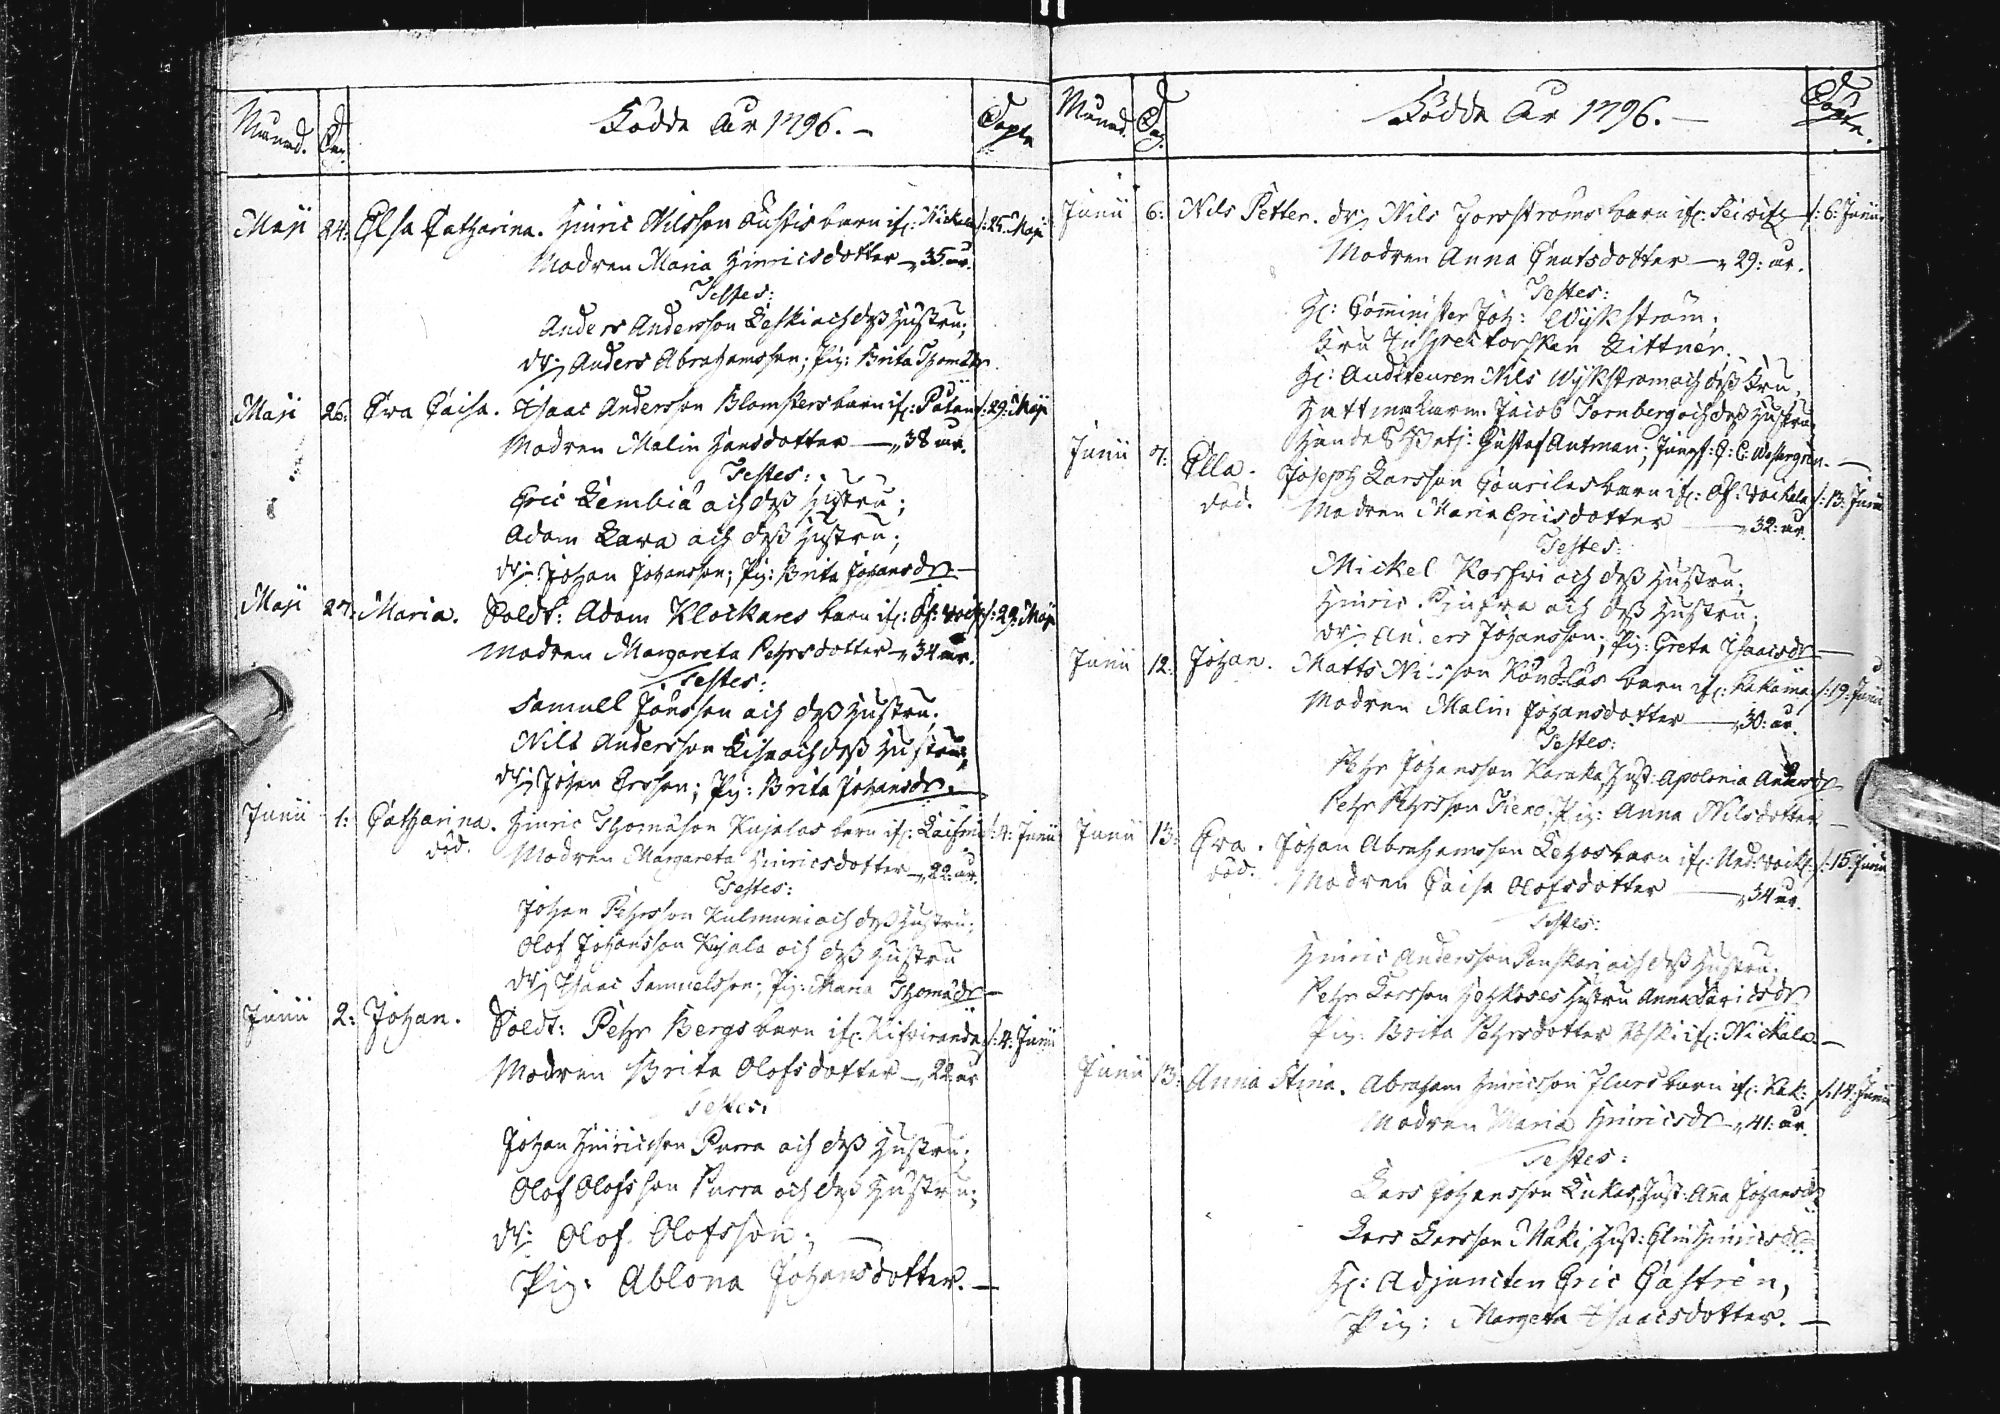 Månad. Dag. Födde År 1796. Döpte
Maji 24: Elsa Catharina. Hinric Nilsson barn ifr: Nickala /: 25: Maji
Modren Maria Hinricsdotter — 35 år.
Testes:
Anders Andersson Leski och dess Hustru;
dr: Anders Abrahamsson; Pig: Brita Thomædr.
Maji 26: Eva Caisa. Isaac Andersson Blomsters barn ifr: /: 29: Maji
Modren Malin Hansdotter — 38 år.
Testes:
Eric Lembiä och dess Hustru;
Adam Lava och dess Hustru;
dr: Johan Johansson; Pig: Brita Johansdr —
Maji 27: Maria. Soldt: Adam Klockares barn ifr: Öf: Voik /: 29: Maji
Modren Margareta Pehrsdotter — 34 år.
Testes:
Samuell Jönsson och dess Hustru;
Nils Andersson och dess Hustru;
dr: Johan Ersson; Pig: Brita Johansdr. —
Junii 1: Catharina. Hinric Thomæson Kujalas barn ifr: /: 4: Junii
död. Modren Margareta Hinricsdotter — 22: år.
Testes:
Johan Pehrsson Kulmuni och dess Hustru;
Olof Johansson Kujala och dess Hustru
dr: Isaac Samuelsson; Pig: Maria Thomædr —
Junii 2: Johan. Soldt: Pehr Bergs barn ifr: Kifviranda /: 4: Junii
Modren Brita Olofsdotter — 22 år
Testes:
Johan Hinricsson Purra och dess Hustru;
Olof Olofsson Purra och dess Hustru;
dr: Olof Olofsson; —
Pig: Ablona Johansdotter. —
Månad. Dag. Födde År 1796. — Döpte.
Junii 6: Nils Petter. dr: Nils Forsströms barn ifr: /: 6: Junii
Modren Anna Cnutsdotter — 29: år.
Testes:
Hr: Comminister Joh: Wijkström;
Fru Inspectorskan Zittner.
Hr: Auditeuren Nils Wijkström och dess Fru,
Jacob Fornberg och dess Hustru
Gustaf Antman; Jungf: C: C: Westergren. —
Junii 7: Ella. Joseph Larsson barn ifr: Öf: Voikala /: 13: Junii
död. Modren Maria Ericsdotter — 32: år.
Testes:
Mickel Korfwi och dess Hustru;
Hinric och dess Hustru;
dr: Anders Johansson; Pig: Greta Isaacsdr —
Junii 12: Johan. Matts Nilsson barn ifr: Kakama /: 19: Junii
Modren Malin Johansdotter — 30: år.
Testes:
Pehr Johansson Karaka, Hust: Apolonia Andersdr
Pehr Pehrsson Tieno. Pig: Anna Nilsdotter —
Junii 13: Eva. Johan Abrahamsson Lehos barn ifr: Ned: Voik: /: 15: Junii
död. Modren Caisa Olofsdotter — 34 år.
Testes:
Hinric Andersson och dess Hustru;
Pehr Larsson Hustru Anna
Pig: Brita Pehrsdotter ifr: Nickala. —
Junii 13: Anna Stina. Abraham Hinricsson barn ifr: Kak: /: 14: Junii
Modren Maria Hinricsdr — 41: år.
Testes:
Lars Johansson Lukas, Hust: Anna Johansdr
Lars Larsson Mäki, Hust: Elin Hinricsdr
Hr: Adjuncten Eric Castrén,
Pig: Margeta Isaacsdotter. —